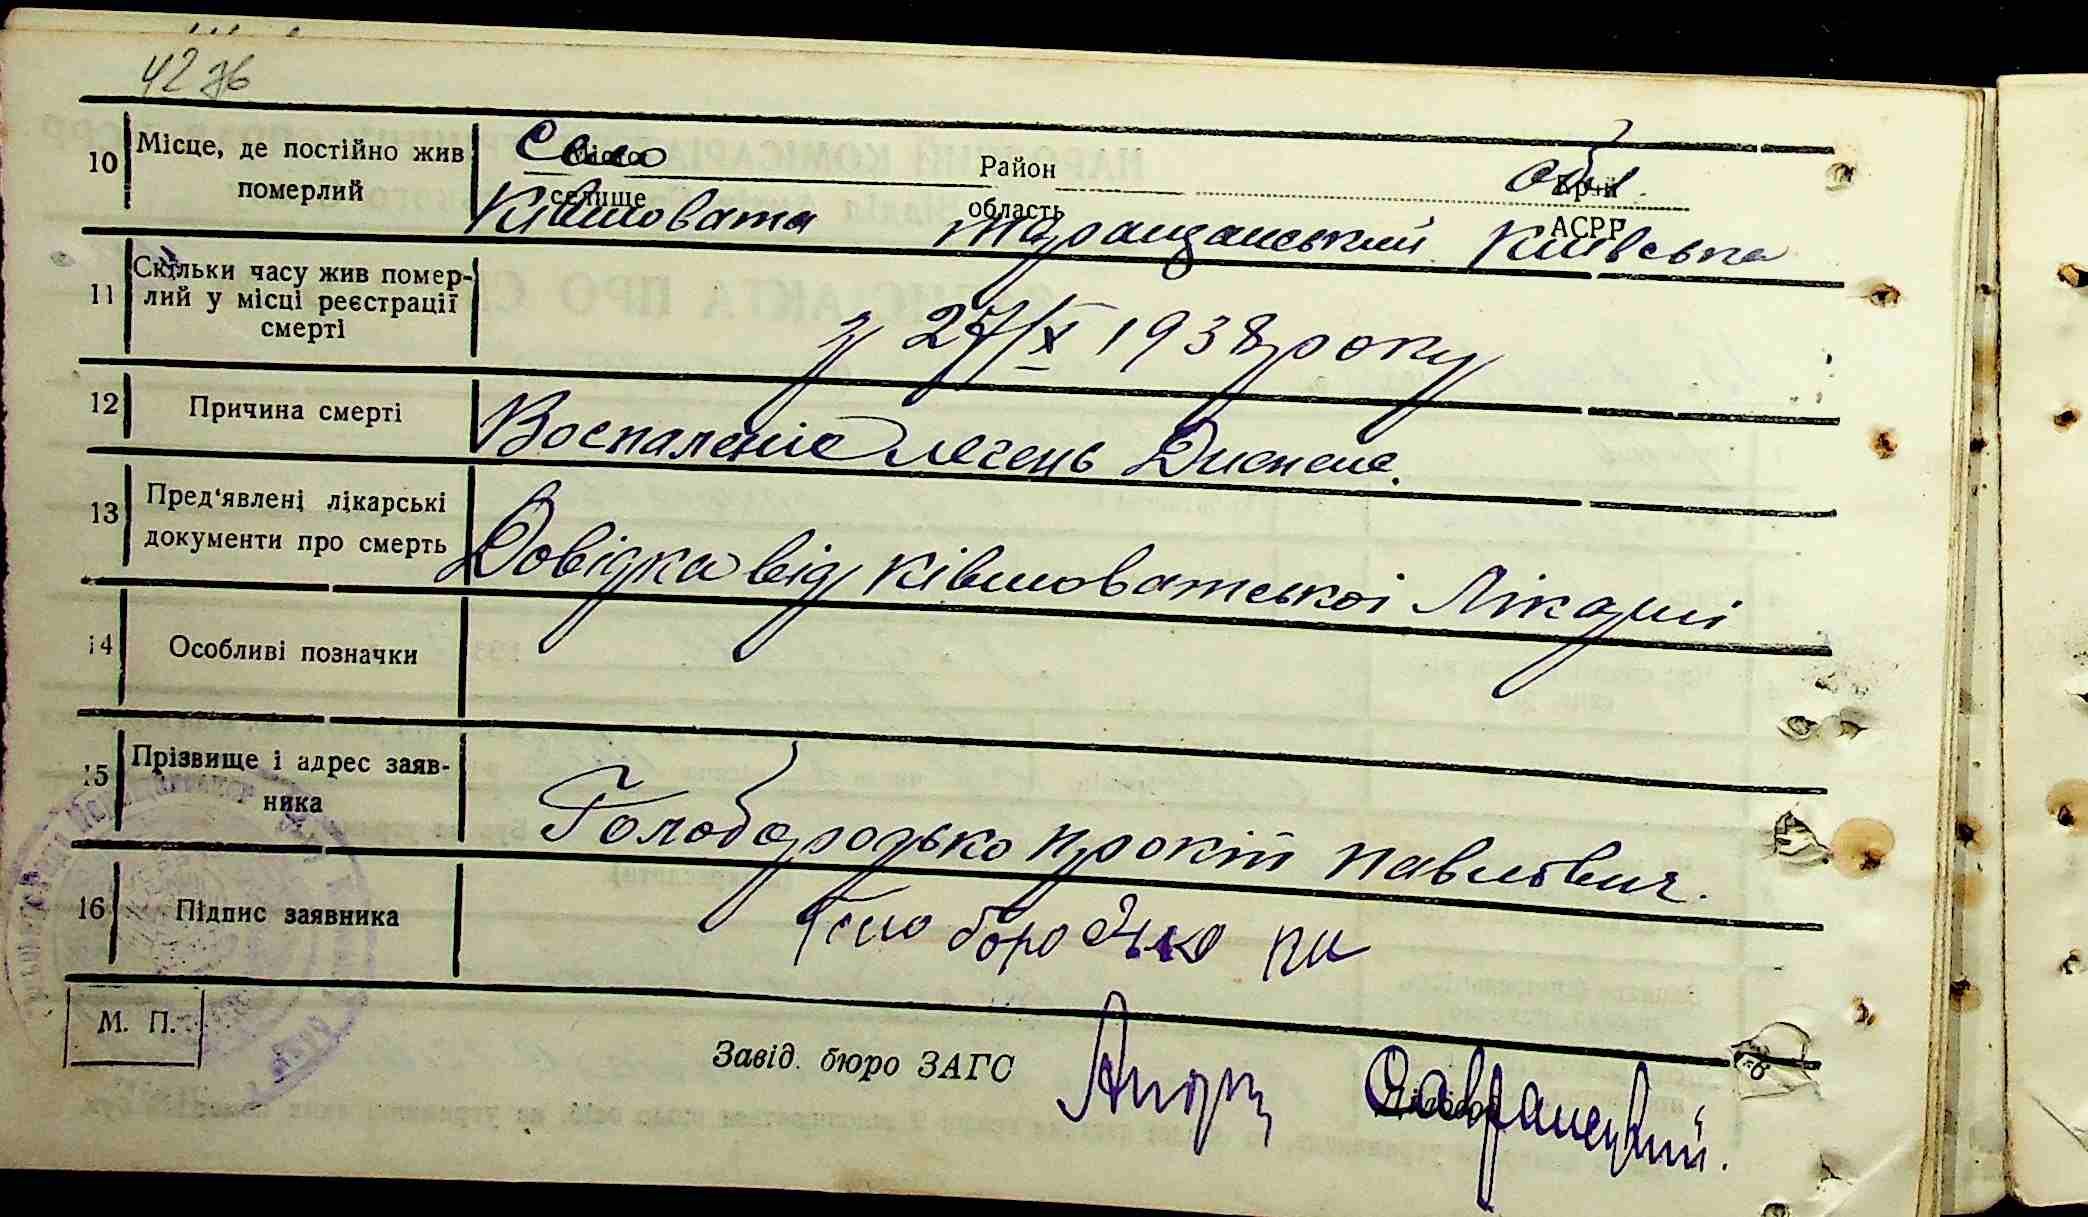 42 зв
10 Місце, де постійно жив померлий
Село Місто Район обл. Край
селище область АСРР
Ківшовата Таращанський Київська
11 Скільки часу жив померлий у місці реєстрації смерті
з 27/X 1938 року
12 Причина смерті
Воспаленіе легень
13 Пред'явлені лікарські документи про смерть
Довідка від Ківшоватської Лікарні
14 Особливі позначки
15 Прізвище і адрес заявника
Голобородько Прокіп Павлович.
16 Підпис заявника
Голобородько ПП
М. П.
Завід. бюро ЗАГС
Савранецкий.